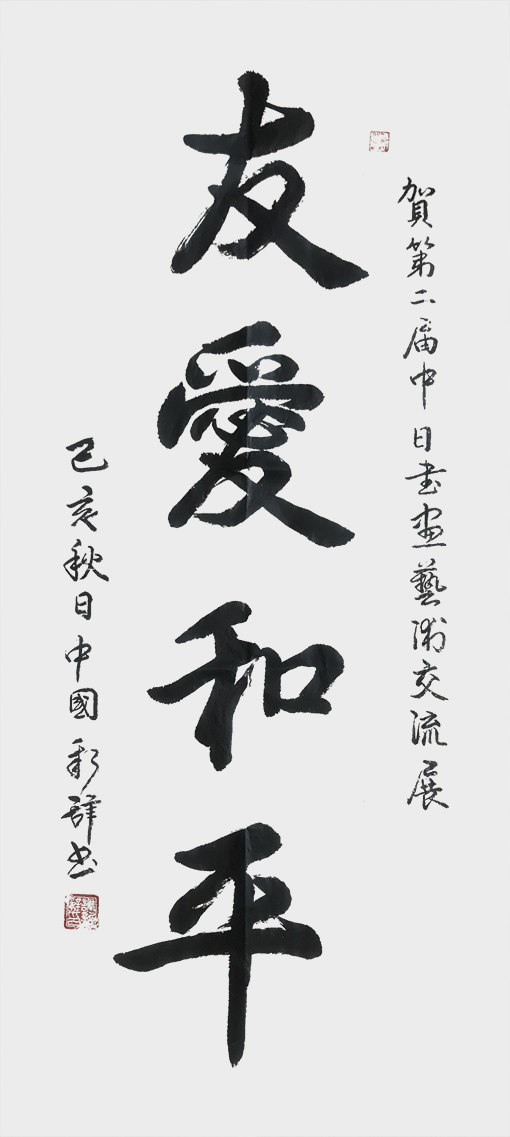 賀第二屆中日書畫藝術交流展
友愛和平
己亥秋日中國彩辭书